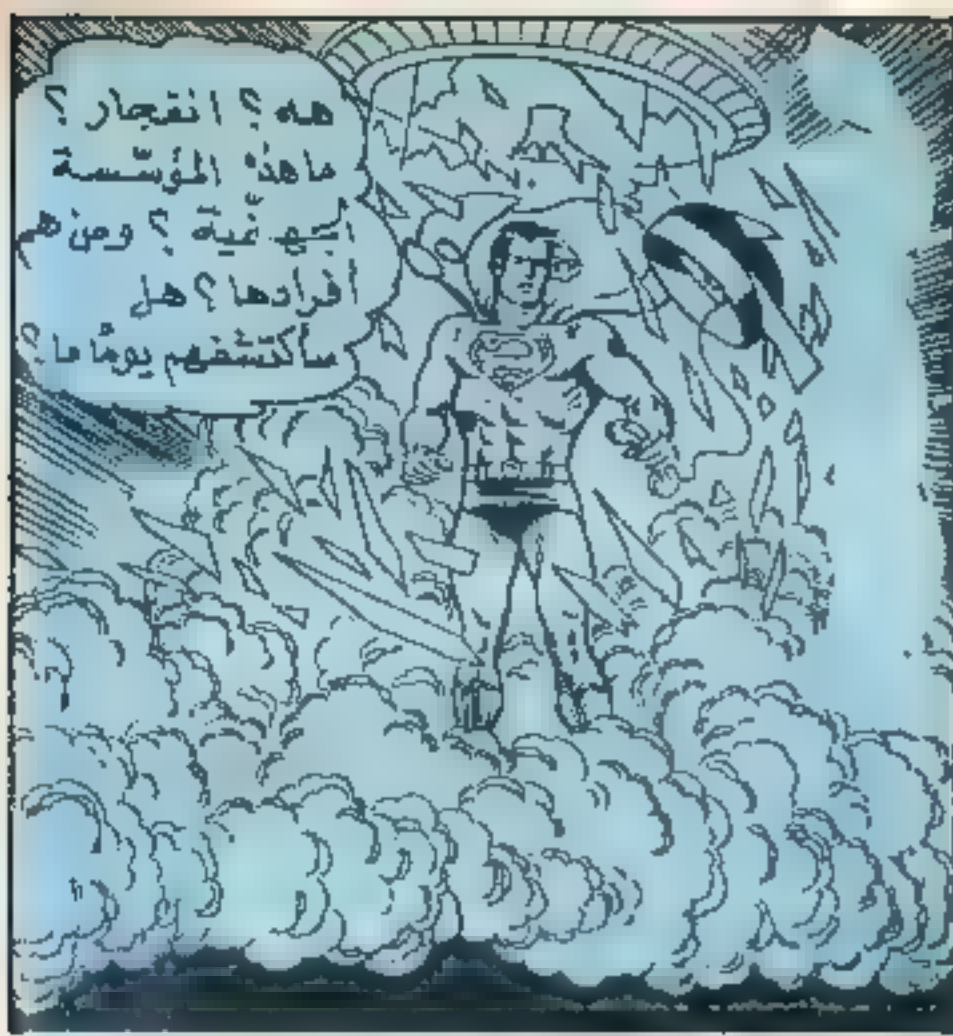 هه ؟ انفجار ؟
ماهذه المؤسّسة
الجهنّمية ؟ ومن هم
أفرادها ؟ هل
سأكتشفهم يومًا ما ؟